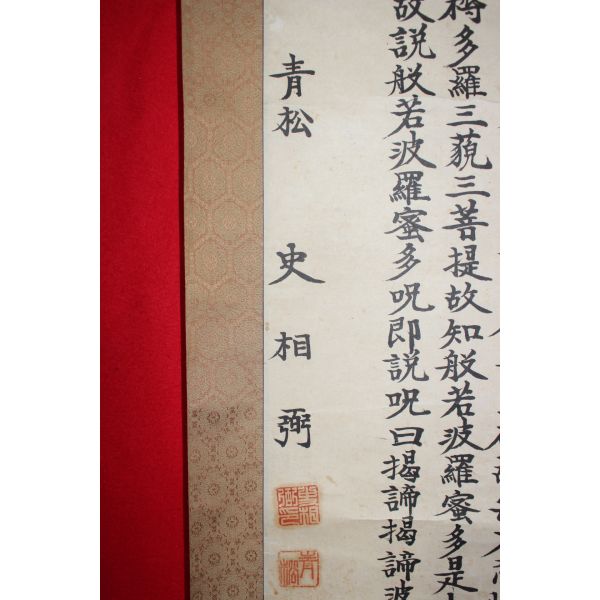 耨多羅三藐三菩提故知般若波羅蜜多是
故説般若波羅蜜多呪即説呪曰揭諦揭諦波
青松 史相弼
史相弼印
青松